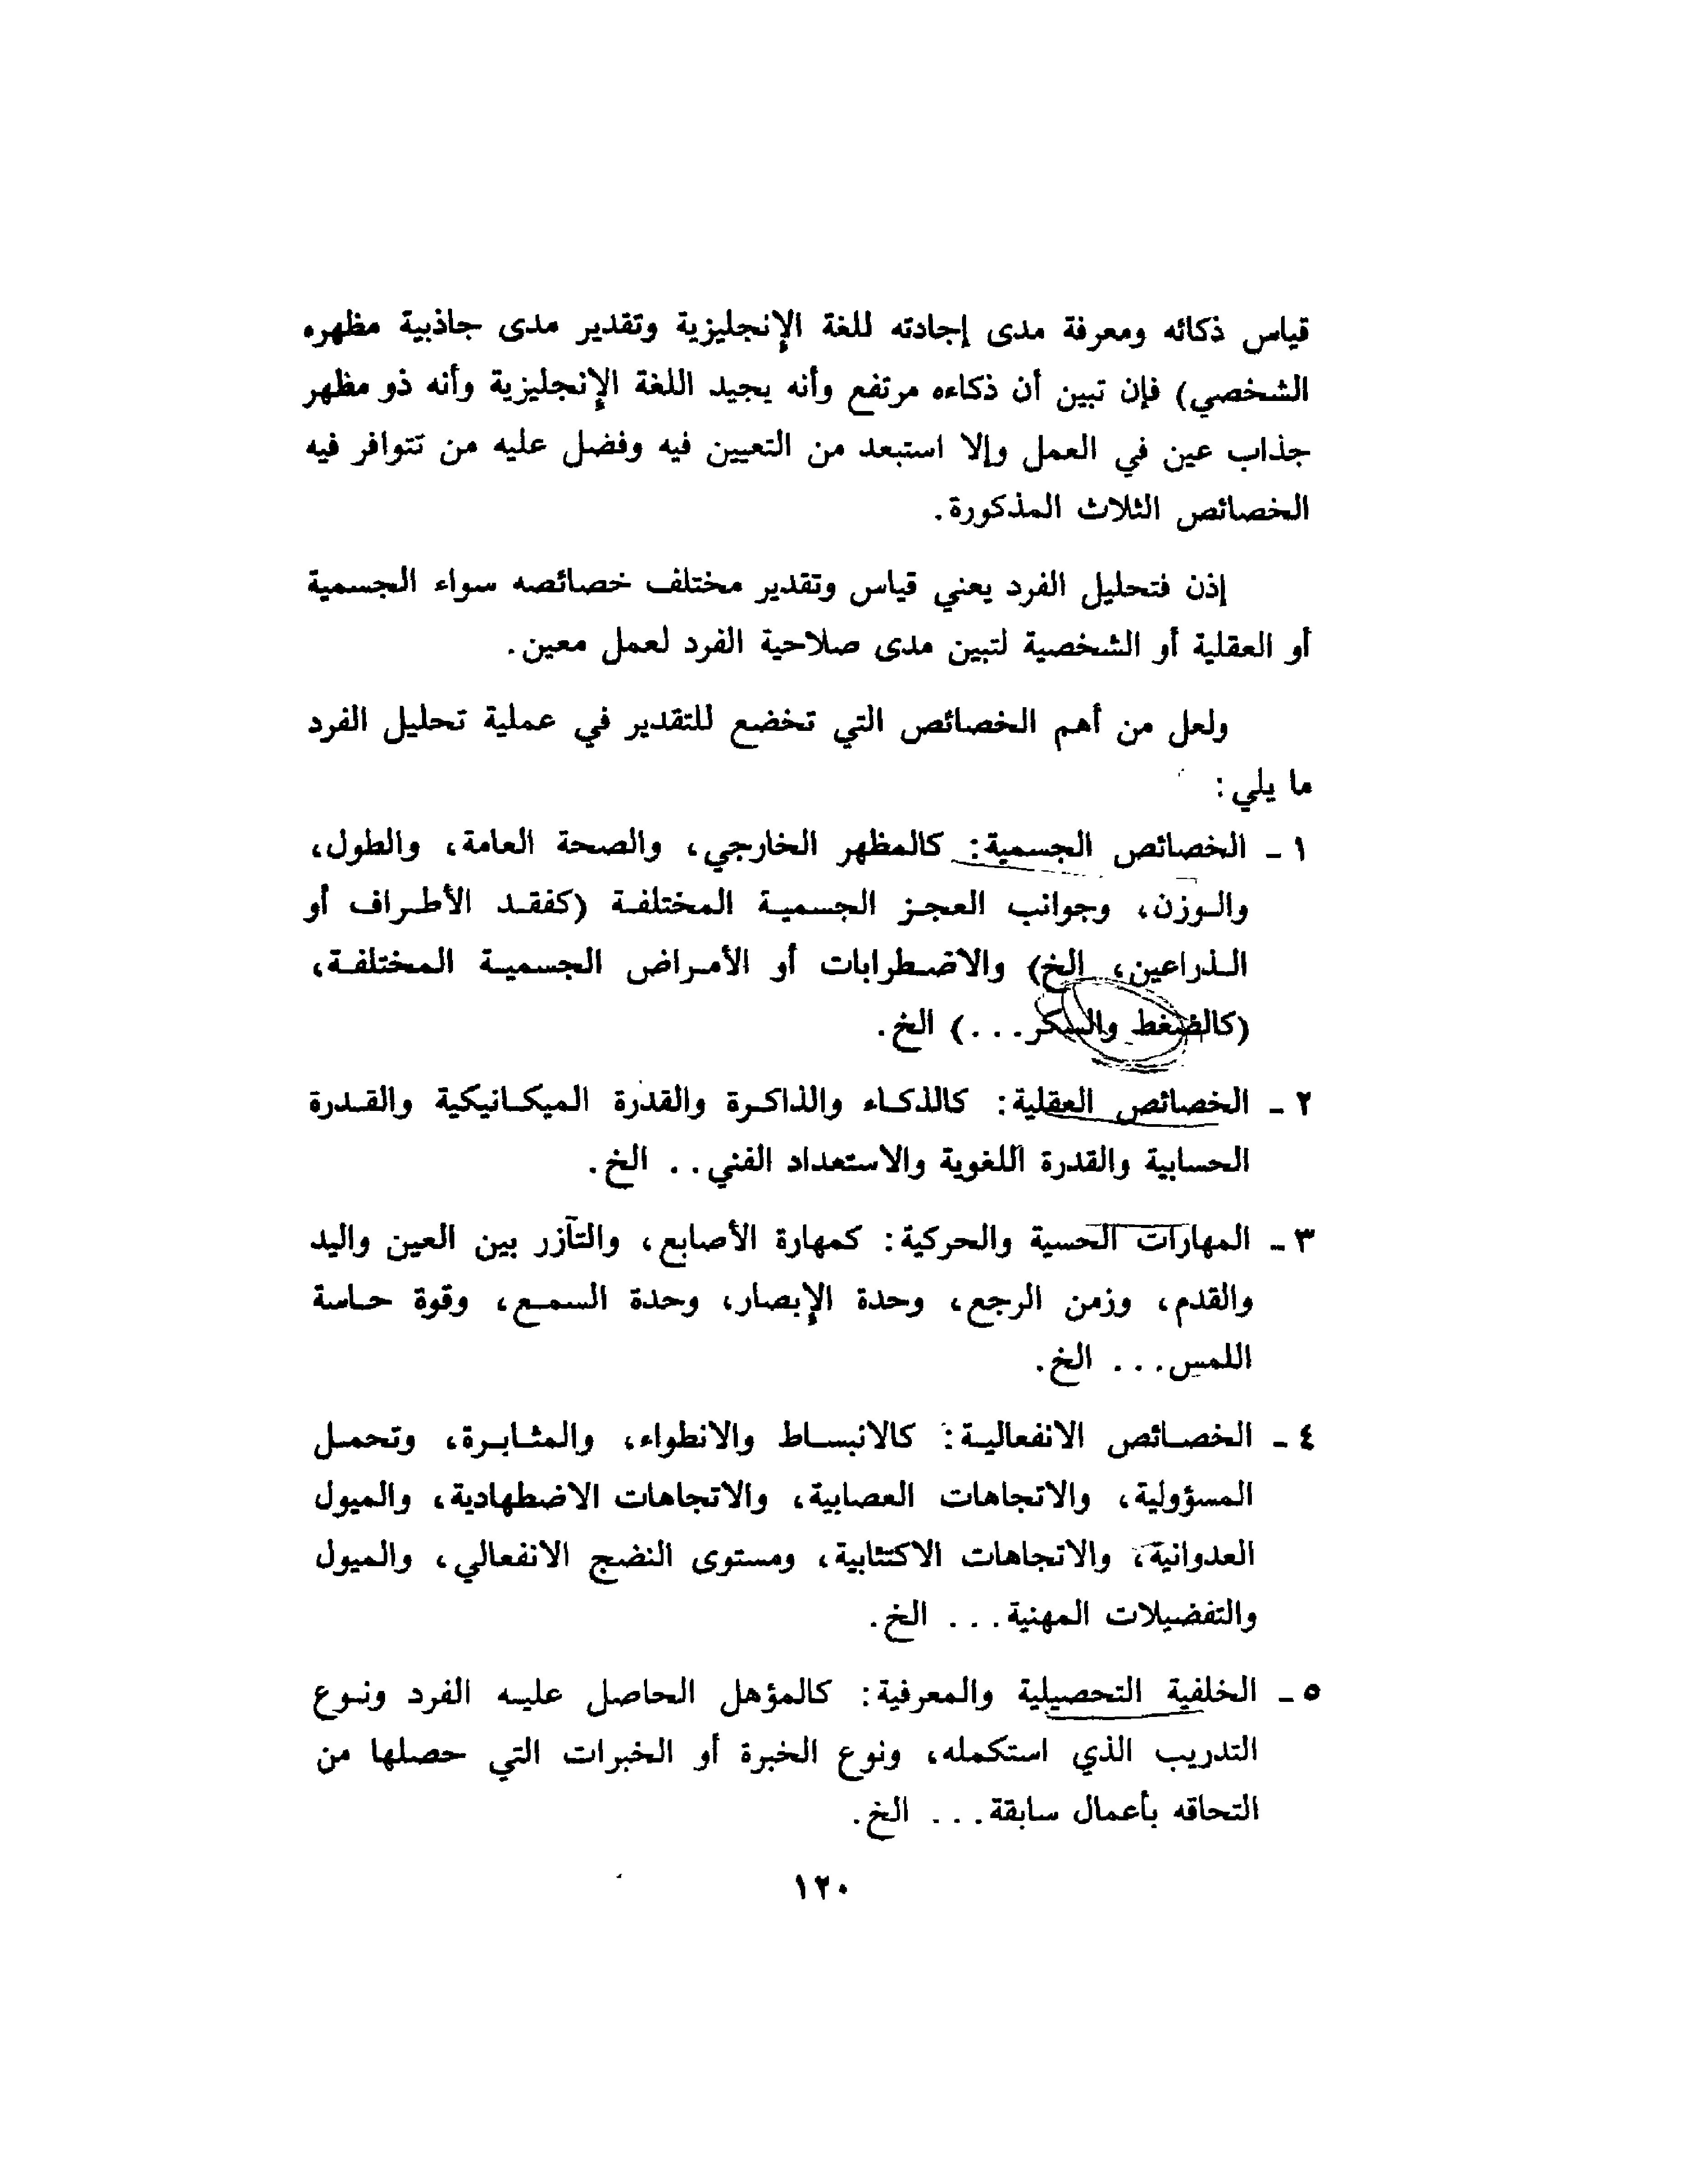 قياس ذكائه ومعرفة مدى إجادته للغة الإنجليزية وتقدير مدى جاذبية مظهره
الشخصي) فإن تبين أن ذكاءه مرتفع وأنه يجيد اللغة الإنجليزية وأنه ذو مظهر
جذاب عين في العمل وإلا استبعد من التعيين فيه وفضل عليه من تتوافر فيه
الخصائص الثلاث المذكورة.
إذن فتحليل الفرد يعني قياس وتقدير مختلف خصائصه سواء الجسمية
أو العقلية أو الشخصية لتبين مدى صلاحية الفرد لعمل معين.
ولعل من أهم الخصائص التي تخضع للتقدير في عملية تحليل الفرد
ما يلي:
١ - الخصائص الجسمية: كالمظهر الخارجي، والصحة العامة، والطول،
والوزن، وجوانب العجز الجسمية المختلفة (كفقد الأطراف أو
الذراعين، الخ) والاضطرابات أو الأمراض الجسمية المختلفة،
(كالضغط والسكر...) الخ.
٢ - الخصائص العقلية: كالذكاء والذاكرة والقدرة الميكانيكية والقدرة
الحسابية والقدرة اللغوية والاستعداد الفني.. الخ.
٣ - المهارات الحسية والحركية: كمهارة الأصابع، والتآزر بين العين واليد
والقدم، وزمن الرجع، وحدة الإبصار، وحدة السمع، وقوة حاسة
اللمس... الخ.
٤ - الخصائص الانفعالية: كالانبساط والانطواء، والمثابرة، وتحمل
المسؤولية، والاتجاهات العصابية، والاتجاهات الاضطهادية، والميول
العدوانية، والاتجاهات الاكتئابية، ومستوى النضج الانفعالي، والميول
والتفضيلات المهنية... الخ.
٥ - الخلفية التحصيلية والمعرفية: كالمؤهل الحاصل عليه الفرد ونوع
التدريب الذي استكمله، ونوع الخبرة أو الخبرات التي حصلها من
التحاقه بأعمال سابقة... الخ.
١٢٠